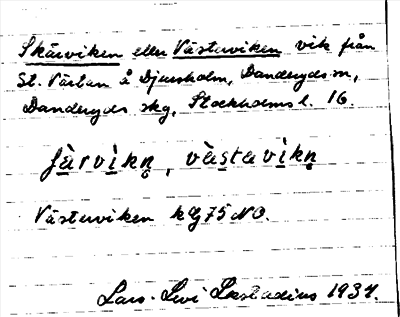 Skärviken eller Västerviken vik från
St. Värtan å Djursholm, Danderyds sn,
Danderyds skg, Stockholms l. 16.
fạ̀rvìkn̥, vàstavìkn̥
Västerviken kg 75 NO.
Lars-Levi Læstadius 1937.